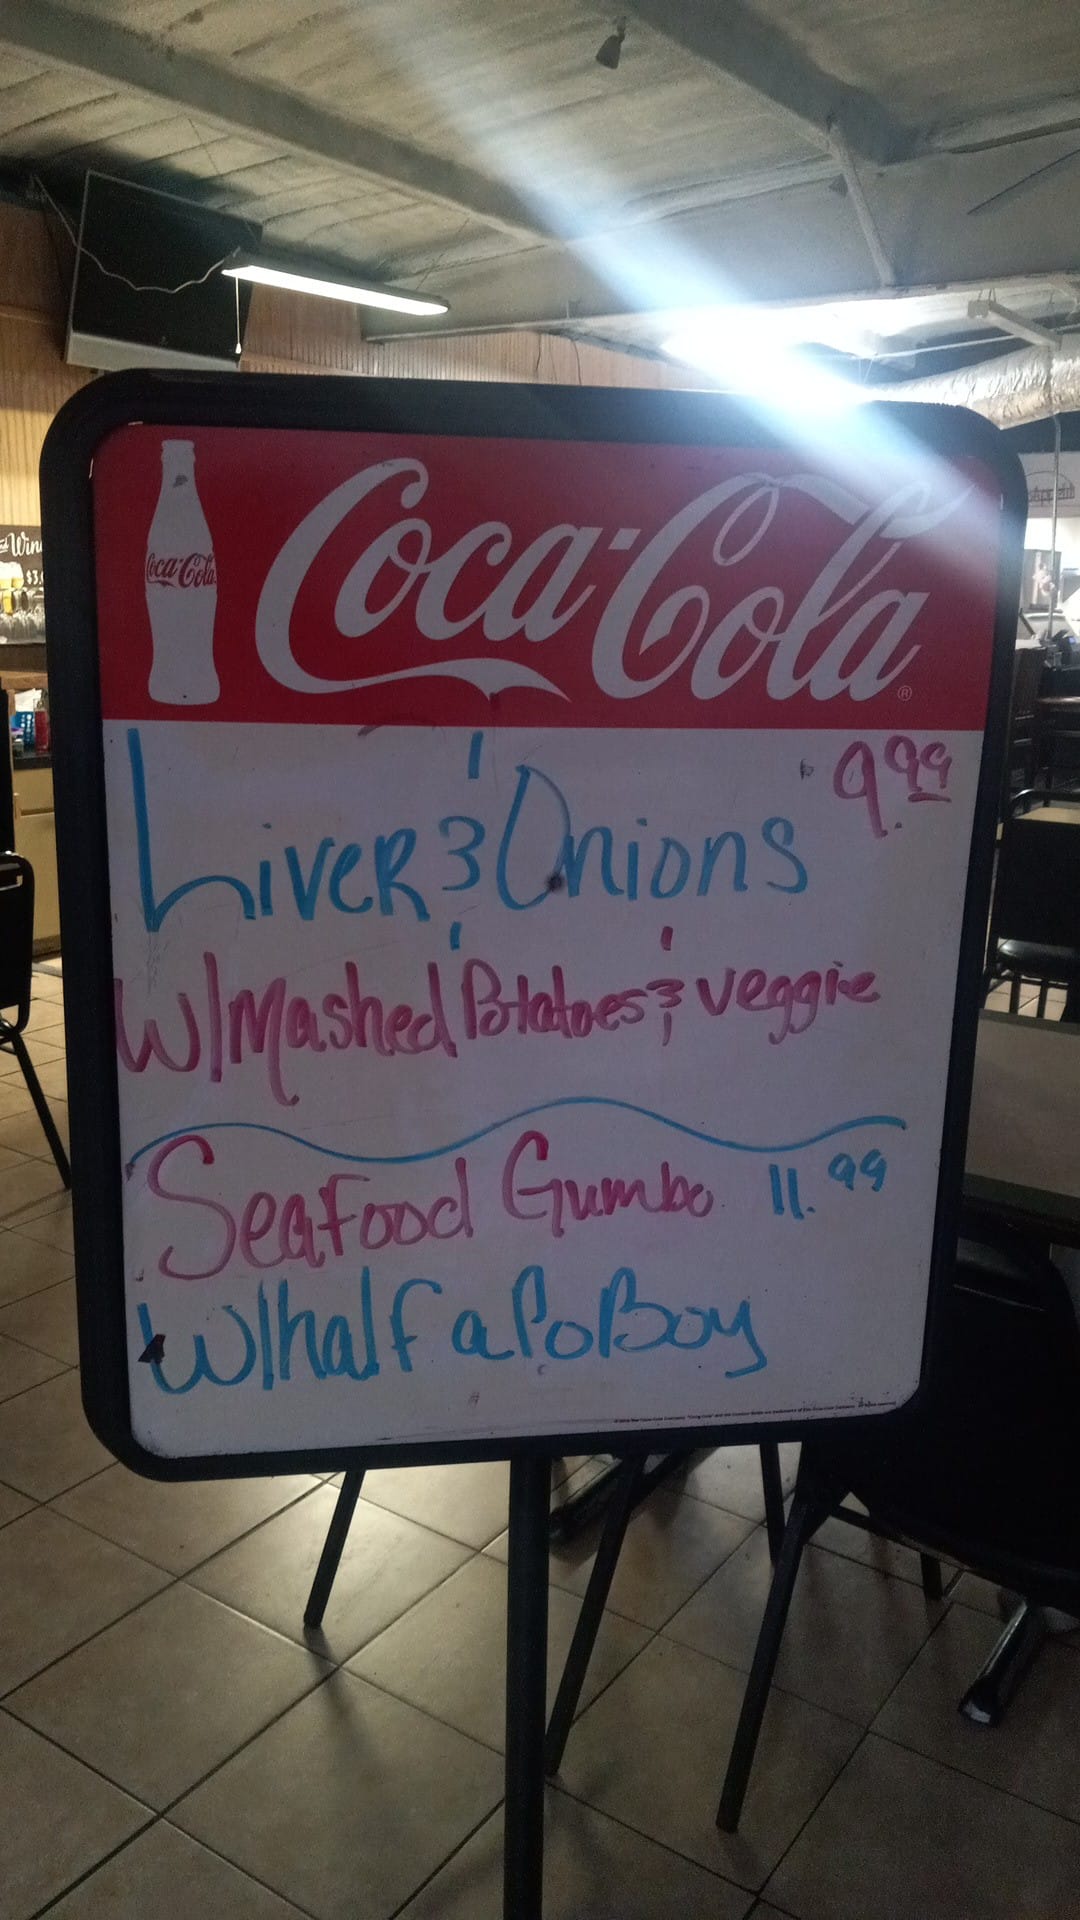 Coca-Cola
Coca-Cola ®
Liver & Onions 9.99
W/Mashed Potatoes & veggie
Seafood Gumbo 11.99
W/half a PoBoy
Win
$3.